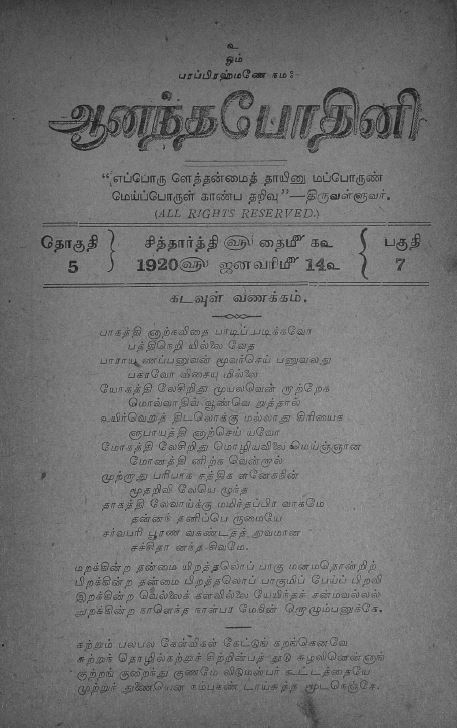 உ
ஓம்
பரப்பிரஹ்மணே நம:
ஆனந்தபோதினி
“எப்பொரு ளெத்தன்மைத் தாயினு மப்பொருண்
மெய்ப்பொருள் காண்ப தறிவு”—திருவள்ளுவர்.
(ALL RIGHTS RESERVED.)
தொகுதி 5
சித்தார்த்தி ௵ தைமீ கஉ
1920௵ ஜனவரிமீ 14உ
பகுதி 7
கடவுள் வணக்கம்.
பாகத்தி னாற்கவிதை பாடிப்படிக்கவோ
பத்திநெறி யில்லை வேத
பாராய ணப்பனுவன் மூவர்செய் பனுவலது
பகரவோ விசையு மில்லை
யோகத்தி லேசிறிது முயலவென் றாற்றேக
மொவ்வாதிவ் வூண்வெ றுத்தால்
உயிர்வெறுத் திடலொக்கு மல்லாது கிரியைக
ளுபாயத்தி னாற்செய் யவோ
மோகத்தி லேசிறிது மொழியவிலை மெய்ஞ்ஞான
மோனத்தி னிற்க வென்றால்
முற்றாது பரிபாக சத்திக ளனேகநின்
மூதறிவி லேயெ ழுந்த
தாகத்தி லேவாய்க்கு மமிர்தப்பிர வாகமே
தன்னந் தனிப்பெ ருமையே
சர்வபரி பூரண வகண்டதத் துவமான
சச்சிதா னந்த சிவமே.
மறக்கின்ற தன்மை யிறத்தலொப் பாகு மனமதொன்றிற்
பிறக்கின்ற தன்மை பிறத்தலொப் பாகுமிப் பேய்ப் பிறவி
இறக்கின்ற வெல்லைக் களவில்லை யேயிந்தச் சன்மவல்லல்
துறக்கின்ற நாளெந்த நாள்பர மேநின் றொழும்பனுக்கே.
கற்றும் பலபல கேள்விகள் கேட்டுங் கறங்கெனவே
சுற்றுந் தொழில்கற்றுச் சிற்றின்பத் தூடு சுழலினென்னாங்
குற்றங் குறைந்து குணமே லிடுமன்பர் கூட்டத்தையே
முற்றுந் துணையென நம்புகண் டாய்சுத்த மூடநெஞ்சே.